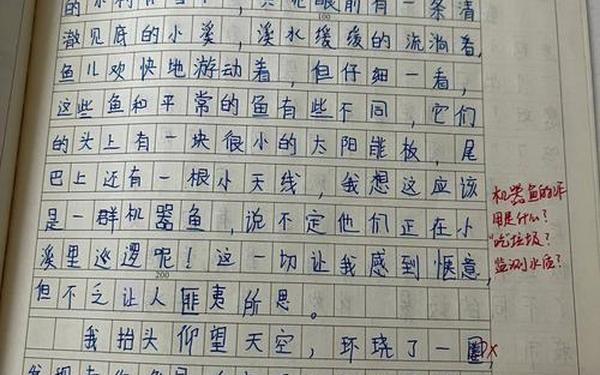 前有一条清
100
澈见底的小溪，溪水缓缓的流淌着，
鱼儿欢快地游动着，但仔细一看，
这些鱼和平常的鱼有些不同，它们
的头上有一块很小的太阳能板，尾
巴上还有一根小天线，我想这应该
是一群机器鱼，说不定他们正在小
溪里巡逻呢！这一切让我感到惬意，
200
但不乏让人匪夷所思。
我抬头仰望天空，环绕了一圈，
机器鱼的作
用是什么？
"吃"垃圾？
监测水质？